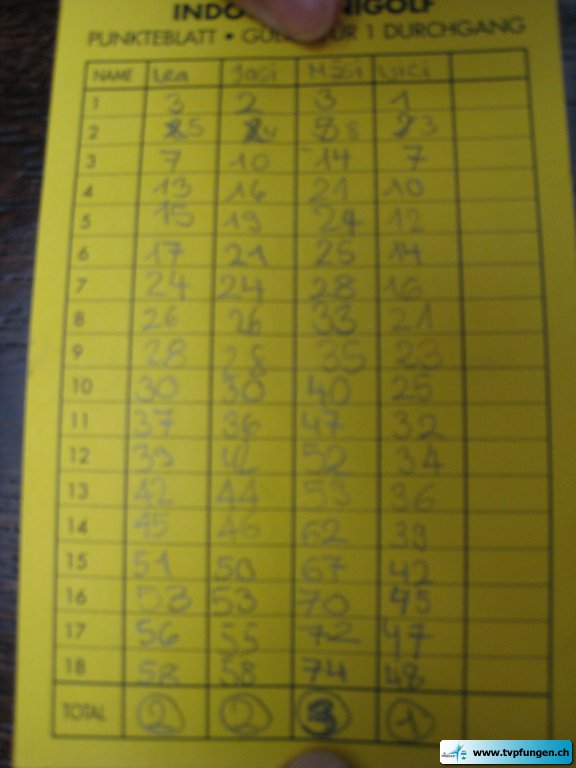 INDO NIGOLF
PUNKTEBLATT • GÜL ÜR 1 DURCHGANG
NAME Lea Josi Luci
1 3 2 3 1
2 5 4 8 3
3 7 10 14 7
4 13 16 21 10
5 15 19 24 12
6 17 21 25 14
7 24 24 28 16
8 26 26 33 21
9 28 28 35 23
10 30 30 40 25
11 37 36 47 32
12 39 42 52 34
13 42 44 53 36
14 45 46 62 39
15 51 50 67 42
16 53 53 70 45
17 56 55 72 47
18 58 58 74 48
TOTAL 2 2 3 1
www.tvpfungen.ch